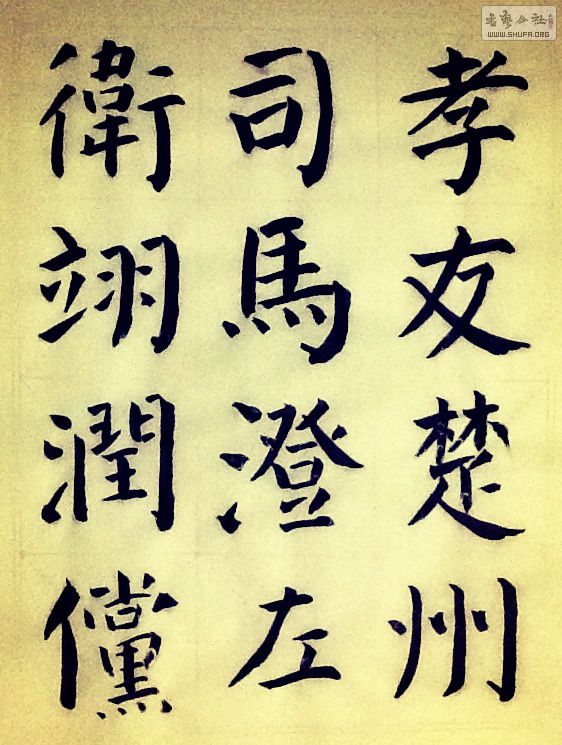 孝友楚州
司馬澄左
衛翊潤儻
書藝公社
WWW.SHUFA.ORG